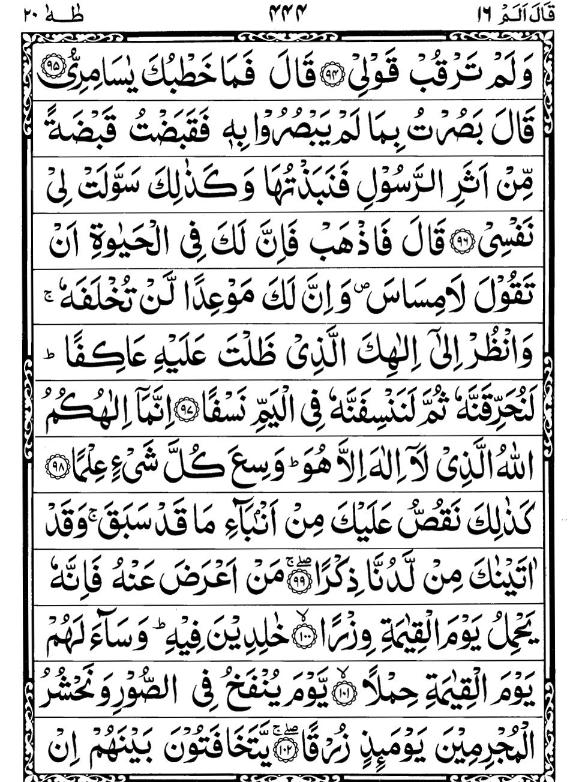 قَالَ اَلَمْ ١٦ ٤٤٤ طٰهٰ ٢٠
وَلَمْ تَرْقُبْ قَوْلِیْ ﴿٩٤﴾ قَالَ فَمَا خَطْبُكَ يٰسَامِرِیُّ ﴿٩٥﴾
قَالَ بَصُرْتُ بِمَا لَمْ يَبْصُرُوْا بِهٖ فَقَبَضْتُ قَبْضَةً
مِّنْ اَثَرِ الرَّسُوْلِ فَنَبَذْتُهَا وَكَذٰلِكَ سَوَّلَتْ لِیْ
نَفْسِیْ ﴿٩٦﴾ قَالَ فَاذْهَبْ فَاِنَّ لَكَ فِی الْحَيٰوةِ اَنْ
تَقُوْلَ لَامِسَاسَ ۪ وَاِنَّ لَكَ مَوْعِدًا لَّنْ تُخْلَفَهٗ ۚ
وَانْظُرْ اِلٰٓی اِلٰهِكَ الَّذِیْ ظَلْتَ عَلَيْهِ عَاكِفًا ؕ
لَنُحَرِّقَنَّهٗ ثُمَّ لَنَنْسِفَنَّهٗ فِی الْيَمِّ نَسْفًا ﴿٩٧﴾ اِنَّمَاۤ اِلٰهُكُمُ
اللّٰهُ الَّذِیْ لَاۤ اِلٰهَ اِلَّا هُوَ ؕ وَسِعَ كُلَّ شَیْءٍ عِلْمًا ﴿٩٨﴾
كَذٰلِكَ نَقُصُّ عَلَيْكَ مِنْ اَنْۢبَآءِ مَا قَدْ سَبَقَ ۚ وَقَدْ
اٰتَيْنٰكَ مِنْ لَّدُنَّا ذِكْرًا ﴿٩٩﴾ ۖۚ مَنْ اَعْرَضَ عَنْهُ فَاِنَّهٗ
يَحْمِلُ يَوْمَ الْقِيٰمَةِ وِزْرًا ﴿١٠٠﴾ ۙ خٰلِدِيْنَ فِيْهِ ؕ وَسَآءَ لَهُمْ
يَوْمَ الْقِيٰمَةِ حِمْلًا ﴿١٠١﴾ ۙ يَّوْمَ يُنْفَخُ فِی الصُّوْرِ وَنَحْشُرُ
الْمُجْرِمِيْنَ يَوْمَئِذٍ زُرْقًا ﴿١٠٢﴾ ۖۚ يَّتَخَافَتُوْنَ بَيْنَهُمْ اِنْ